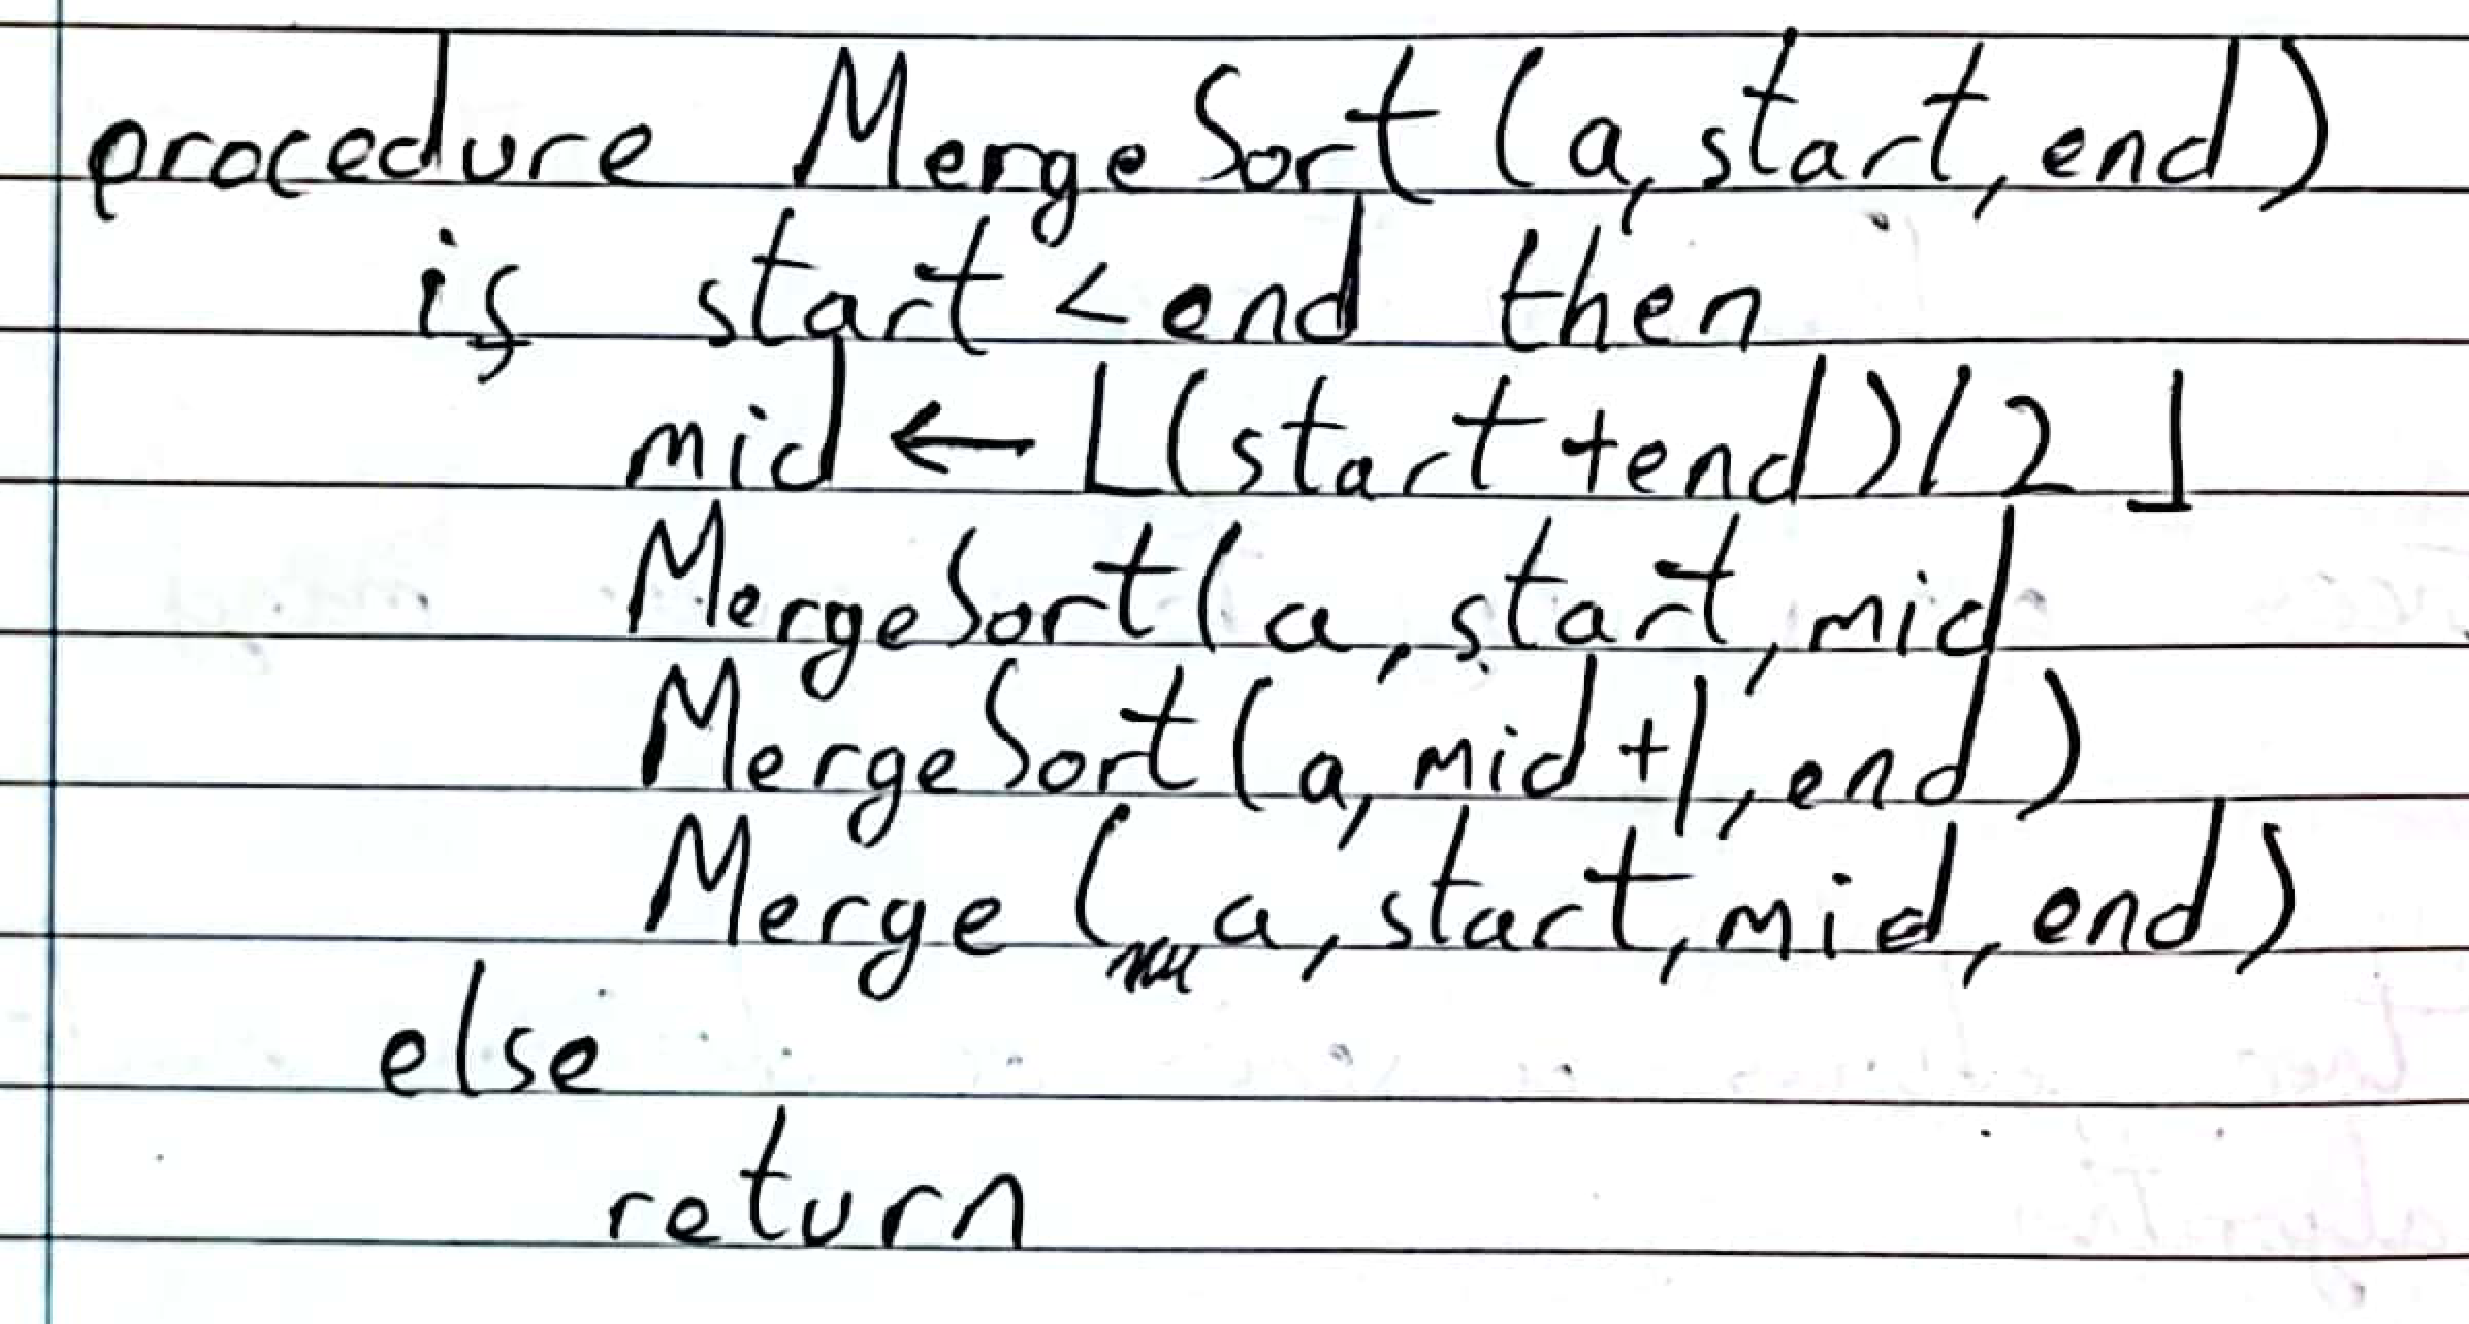 procedure MergeSort (a, start, end)
if start < end then
mid ← ⌊(start + end) / 2⌋
MergeSort (a, start, mid
MergeSort (a, mid + 1, end)
Merge (a, start, mid, end)
else
return